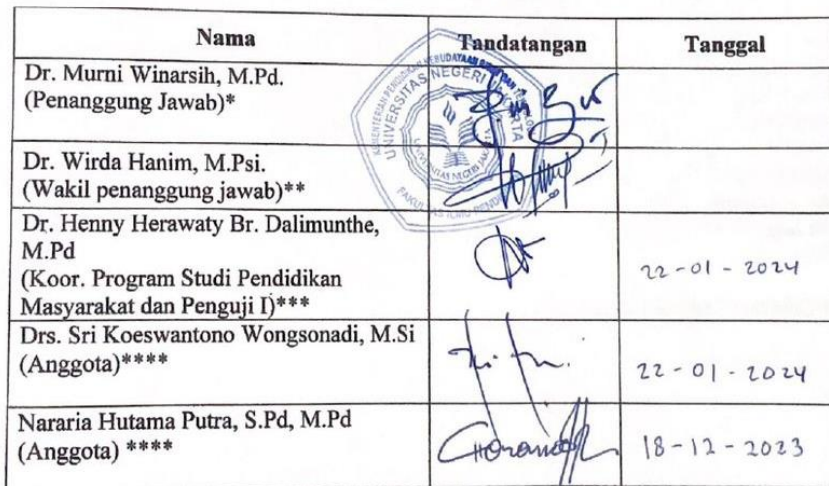 Nama Tandatangan Tanggal
Dr. Murni Winarsih, M.Pd.
(Penanggung Jawab)*
Dr. Wirda Hanim, M.Psi.
(Wakil penanggung jawab)**
Dr. Henny Herawaty Br. Dalimunthe,
M.Pd
(Koor. Program Studi Pendidikan
Masyarakat dan Penguji I)***
22-01-2024
Drs. Sri Koeswantono Wongsonadi, M.Si
(Anggota)****
22-01-2024
Nararia Hutama Putra, S.Pd, M.Pd
(Anggota) ****
18-12-2023
UNIVERSITAS NEGERI JAKARTA